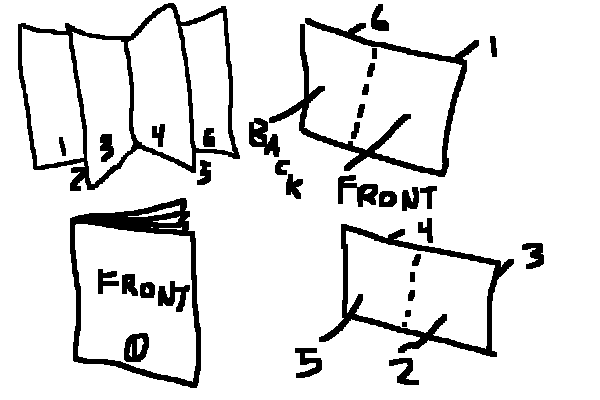 1 3 4 6
2 5
6
1
BACK
FRONT
FRONT
1
4
3
5
2